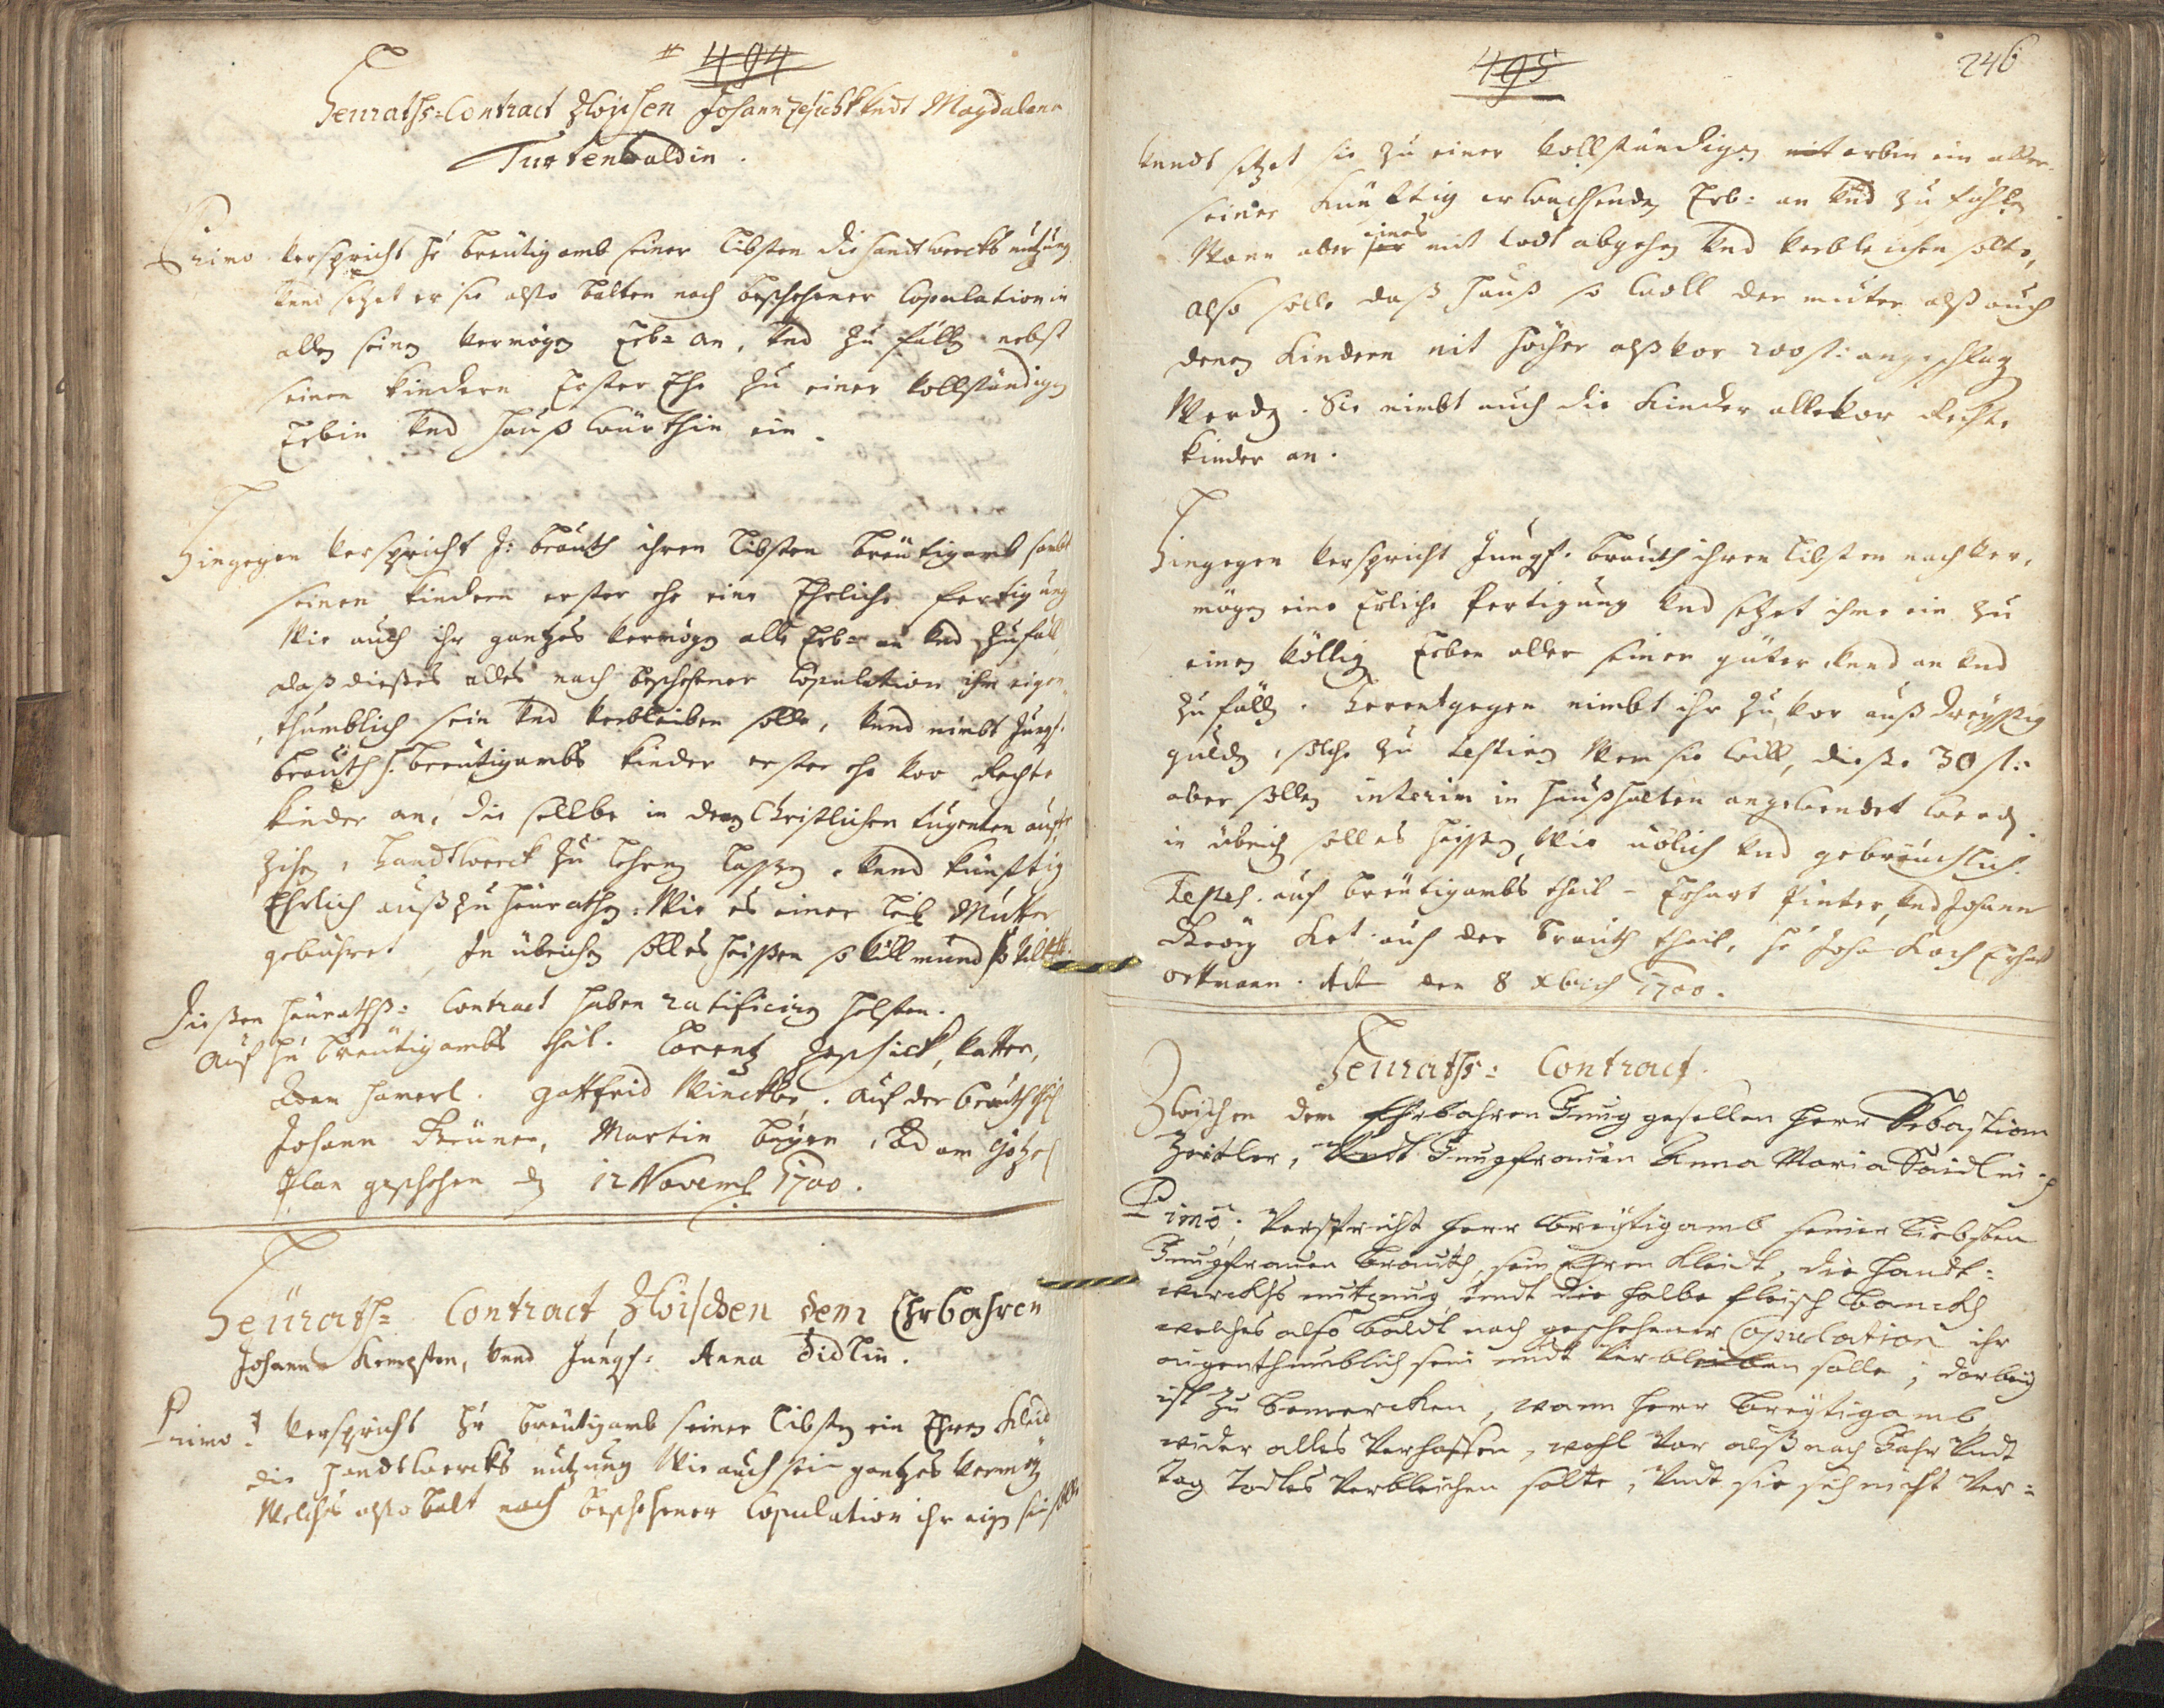 494
Heuraths=Contract Zwischen Johann Zeschickh Vndt Magdalena
Turtenwaldin.
Primo verspricht H: breütigamb seiner libsten die handtwercks nutzung
Vnd setzet er sie also balten nach beschehener Copulation in
allen seinen vermögen Erb= an, Vnd zu fällen nebst
seinen kindern Erster Ehe zu einer vollständigen
Erbin Vnd hauß würthin ein.
Hingegen verspricht J: brauth ihren libsten breütigamb sambt
seinen kindern erster ehe eine Ehrliche fertigung
Wie auch ihr gantzes vermögen alle Erb= an Vnd zufäll,
daß dießes alles nach beschehener Copulation ihm eigen
thumblich sein Vnd verbleiben solle, Vnnd nimbt Jungf:
brauth H: breütigambs kinder erster ehe vor Rechte
kinder an, die selbe in denen Christlichen tugenten auf
zihen, handtwerck zu lehrnen lassen, Vnnd künftig
Ehrlich auß zu heurathen, Wie es einer leib Mutter
gebühret, In übrichen soll es heissen
Dießen heuraths: Contract haben ratificiren helfen.
Auf H: breütigambs theil. Lorentz Zeschick, Vatter,
Adam hamerl. gottfrid Winckler. Auf der brauth theil
Johann Breüner, Martin beyer, Adam Götzel
Plan geschehen den 12 Novemb: 1700.
Heürath= Contract Zwischen dem Ehrbahren
Johann Kempfen, Vnnd Jungf: Anna Sidlin.
Primo: verspricht H: breütigamb seiner libsten ein Ehren Kleid
die handtwercks nutzung Wie auch sein gantzes vermög
Welches also balt nach beschehener Copulation ihr eigen sein solle
495
246
Vnndt setzet sie zu einer vollständigen mit erbin ein aller
seiner künftig erwachsenden Erb= an Vnd zu fählen
Wann aber eines mit todt abgehen Vnd verbleichen solte,
Also solle daß hauß so woll der muter alß auch
denen kindern nit höcher alß vor 200 fl: angeschlag
Werden. Sie nimbt auch die kinder alle vor Rechte
kinder an.
Hingegen verspricht Jungf. brauth ihren libsten nach ver,
mögen eine Erliche fertigung Vnd setzet ihme ein zu
einen völlig Erben aller seiner güter Vnnd an Vnd
zu fälln. herentgegen nimbt ihr zu vor auß dreyssig
gulden, solche zu testiren Wem sie will, diesse 30 fl:
aber sollen interim in haußhalten angewendet werden.
in übrich soll es heissen, Wie üblich Vnd gebräuchlich.
Testes. auf breütigambs theil – Erhart Pinter, Vnd Johann
Georg auf der brauth theil, H: Joha Koch Erhart
Ortmann. Act den 8 Xbrich 1700.
Heuraths: Contract.
Zwischen dem Ehrbahren Jung gesellen Herr Sebastian
Zeitler, Vndt Jungfrauen Anna Maria Däidlin
Pimo: Verspricht Herr breytigamb seiner Liebsten
Jungfrauen brauth, sein Ehren Kleidt, die Handt=
wercks nutzung, Vndt die halbe fleisch banckh
welches also baldt nach geschehener Copulation ihr
aigenthumblich sein undt verbleiben solle, darbey
ist zu bemercken, wann Herr breytigamb
wider alles Verhoffen, wohl Vor alß nach Jahr Vndt
Tag Todtes Verbleichen solte, Vndt sie sich nicht Ver=